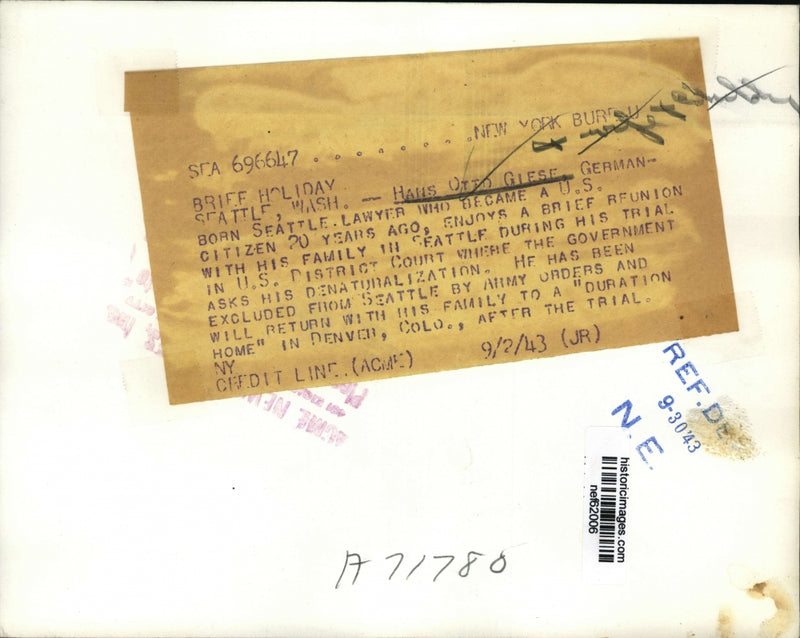 SEA 696647 . . . . . . . . . NEW YORK BUREAU
BRIEF HOLIDAY
SEATTLE, WASH. -- HANS OTTO GIESE, GERMAN-
BORN SEATTLE LAWYER WHO BECAME A U.S.
CITIZEN 20 YEARS AGO, ENJOYS A BRIEF REUNION
WITH HIS FAMILY IN SEATTLE DURING HIS TRIAL
IN U.S. DISTRICT COURT WHERE THE GOVERNMENT
ASKS HIS DENATURALIZATION. HE HAS BEEN
EXCLUDED FROM SEATTLE BY ARMY ORDERS AND
WILL RETURN WITH HIS FAMILY TO A "DURATION
HOME" IN DENVER, COLO., AFTER THE TRIAL.
NY
CREDIT LINE (ACME) 9/2/43 (JR)
ACME NEW
REF. DE
9-30 43
N. E.
historicimages.com
nef62006
A71780